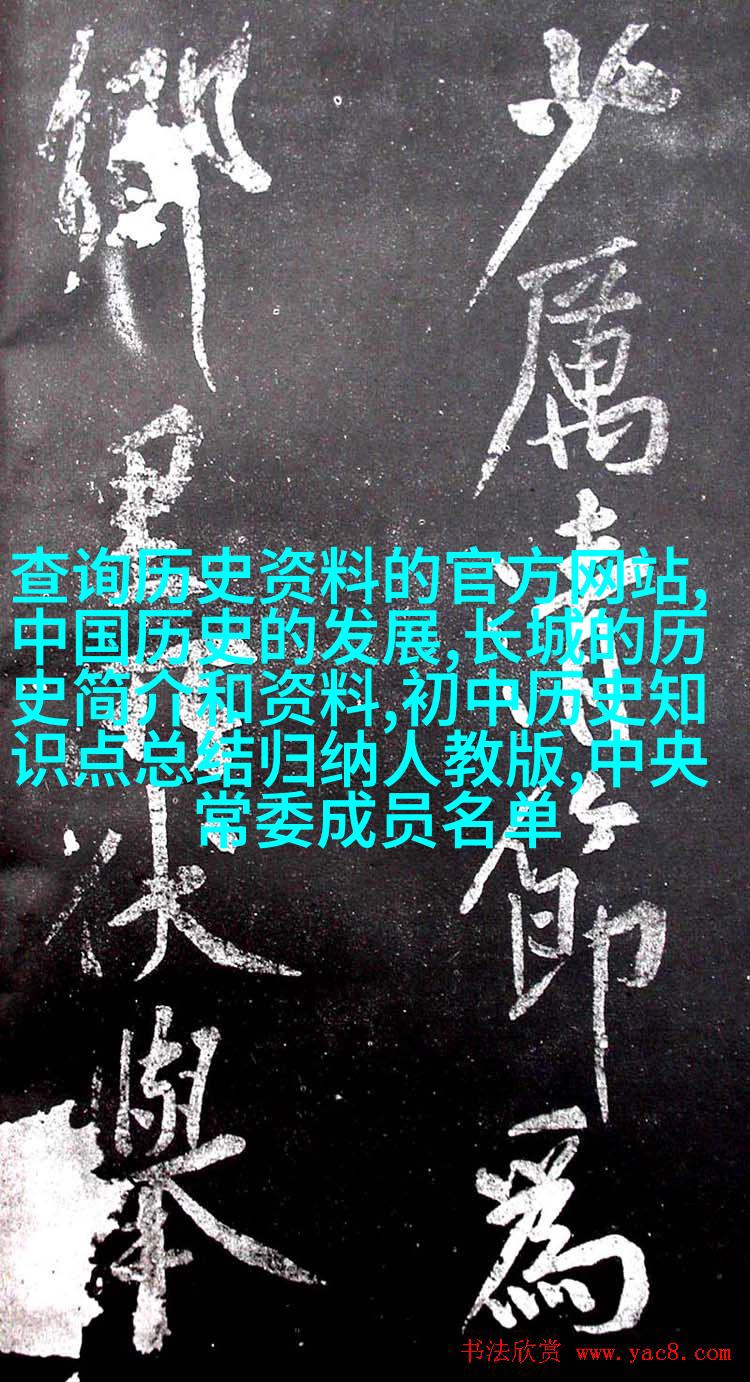 少厲清節為
鄉里所伏舉
查询历史资料的官方网站,
中国历史的发展,长城的历
史简介和资料,初中历史知
识点总结归纳人教版,中央
常委成员名单
书法欣赏 www.yac8.com